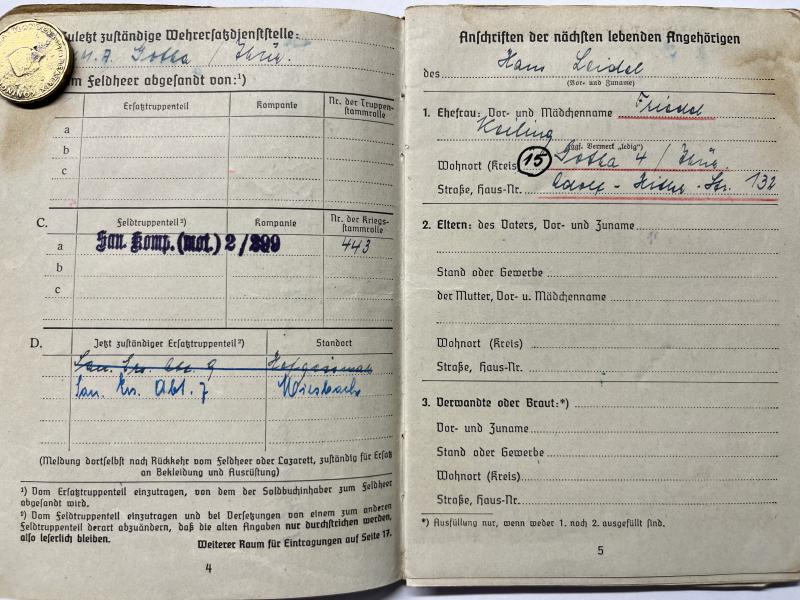 Zuletzt zuständige Wehrersatzdienststelle:
Gotha / Thür.
m Feldheer abgesandt von:¹)
Ersatztruppenteil Kompanie Nr. der Truppen-
stammrolle
a
b
c
C. Feldtruppenteil²) Kompanie Nr. der Kriegs-
stammrolle
a San. Komp. (mot.) 2/299 443
b
c
D. Jetzt zuständiger Ersatztruppenteil²) Standort
San. Ers. Abt. 9 Hofgeismar
San. Ers. Abt. 7 Miesbach
(Meldung dortselbst nach Rückkehr vom Feldheer oder Lazarett, zuständig für Ersatz
an Bekleidung und Ausrüstung)
¹) Vom Ersatztruppenteil einzutragen, von dem der Soldbuchinhaber zum Feldheer
abgesandt wird.
²) Vom Feldtruppenteil einzutragen und bei Versetzungen von einem zum anderen
Feldtruppenteil derart abzuändern, daß die alten Angaben nur durchstrichen werden,
also leserlich bleiben.
Weiterer Raum für Eintragungen auf Seite 17.
4
Anschriften der nächsten lebenden Angehörigen
des Hans Leidel
(Vor- und Zuname)
1. Ehefrau: Vor- und Mädchenname Friedel
Keiling
(ggf. Vermerk „ledig")
Wohnort (Kreis) 15 Gotha 4 / Thür.
Straße, Haus-Nr. Adolf-Hitler-Str. 132
2. Eltern: des Vaters, Vor- und Zuname
Stand oder Gewerbe
der Mutter, Vor- u. Mädchenname
Wohnort (Kreis)
Straße, Haus-Nr.
3. Verwandte oder Braut:*)
Vor- und Zuname
Stand oder Gewerbe
Wohnort (Kreis)
Straße, Haus-Nr.
*) Ausfüllung nur, wenn weder 1. noch 2. ausgefüllt sind.
5